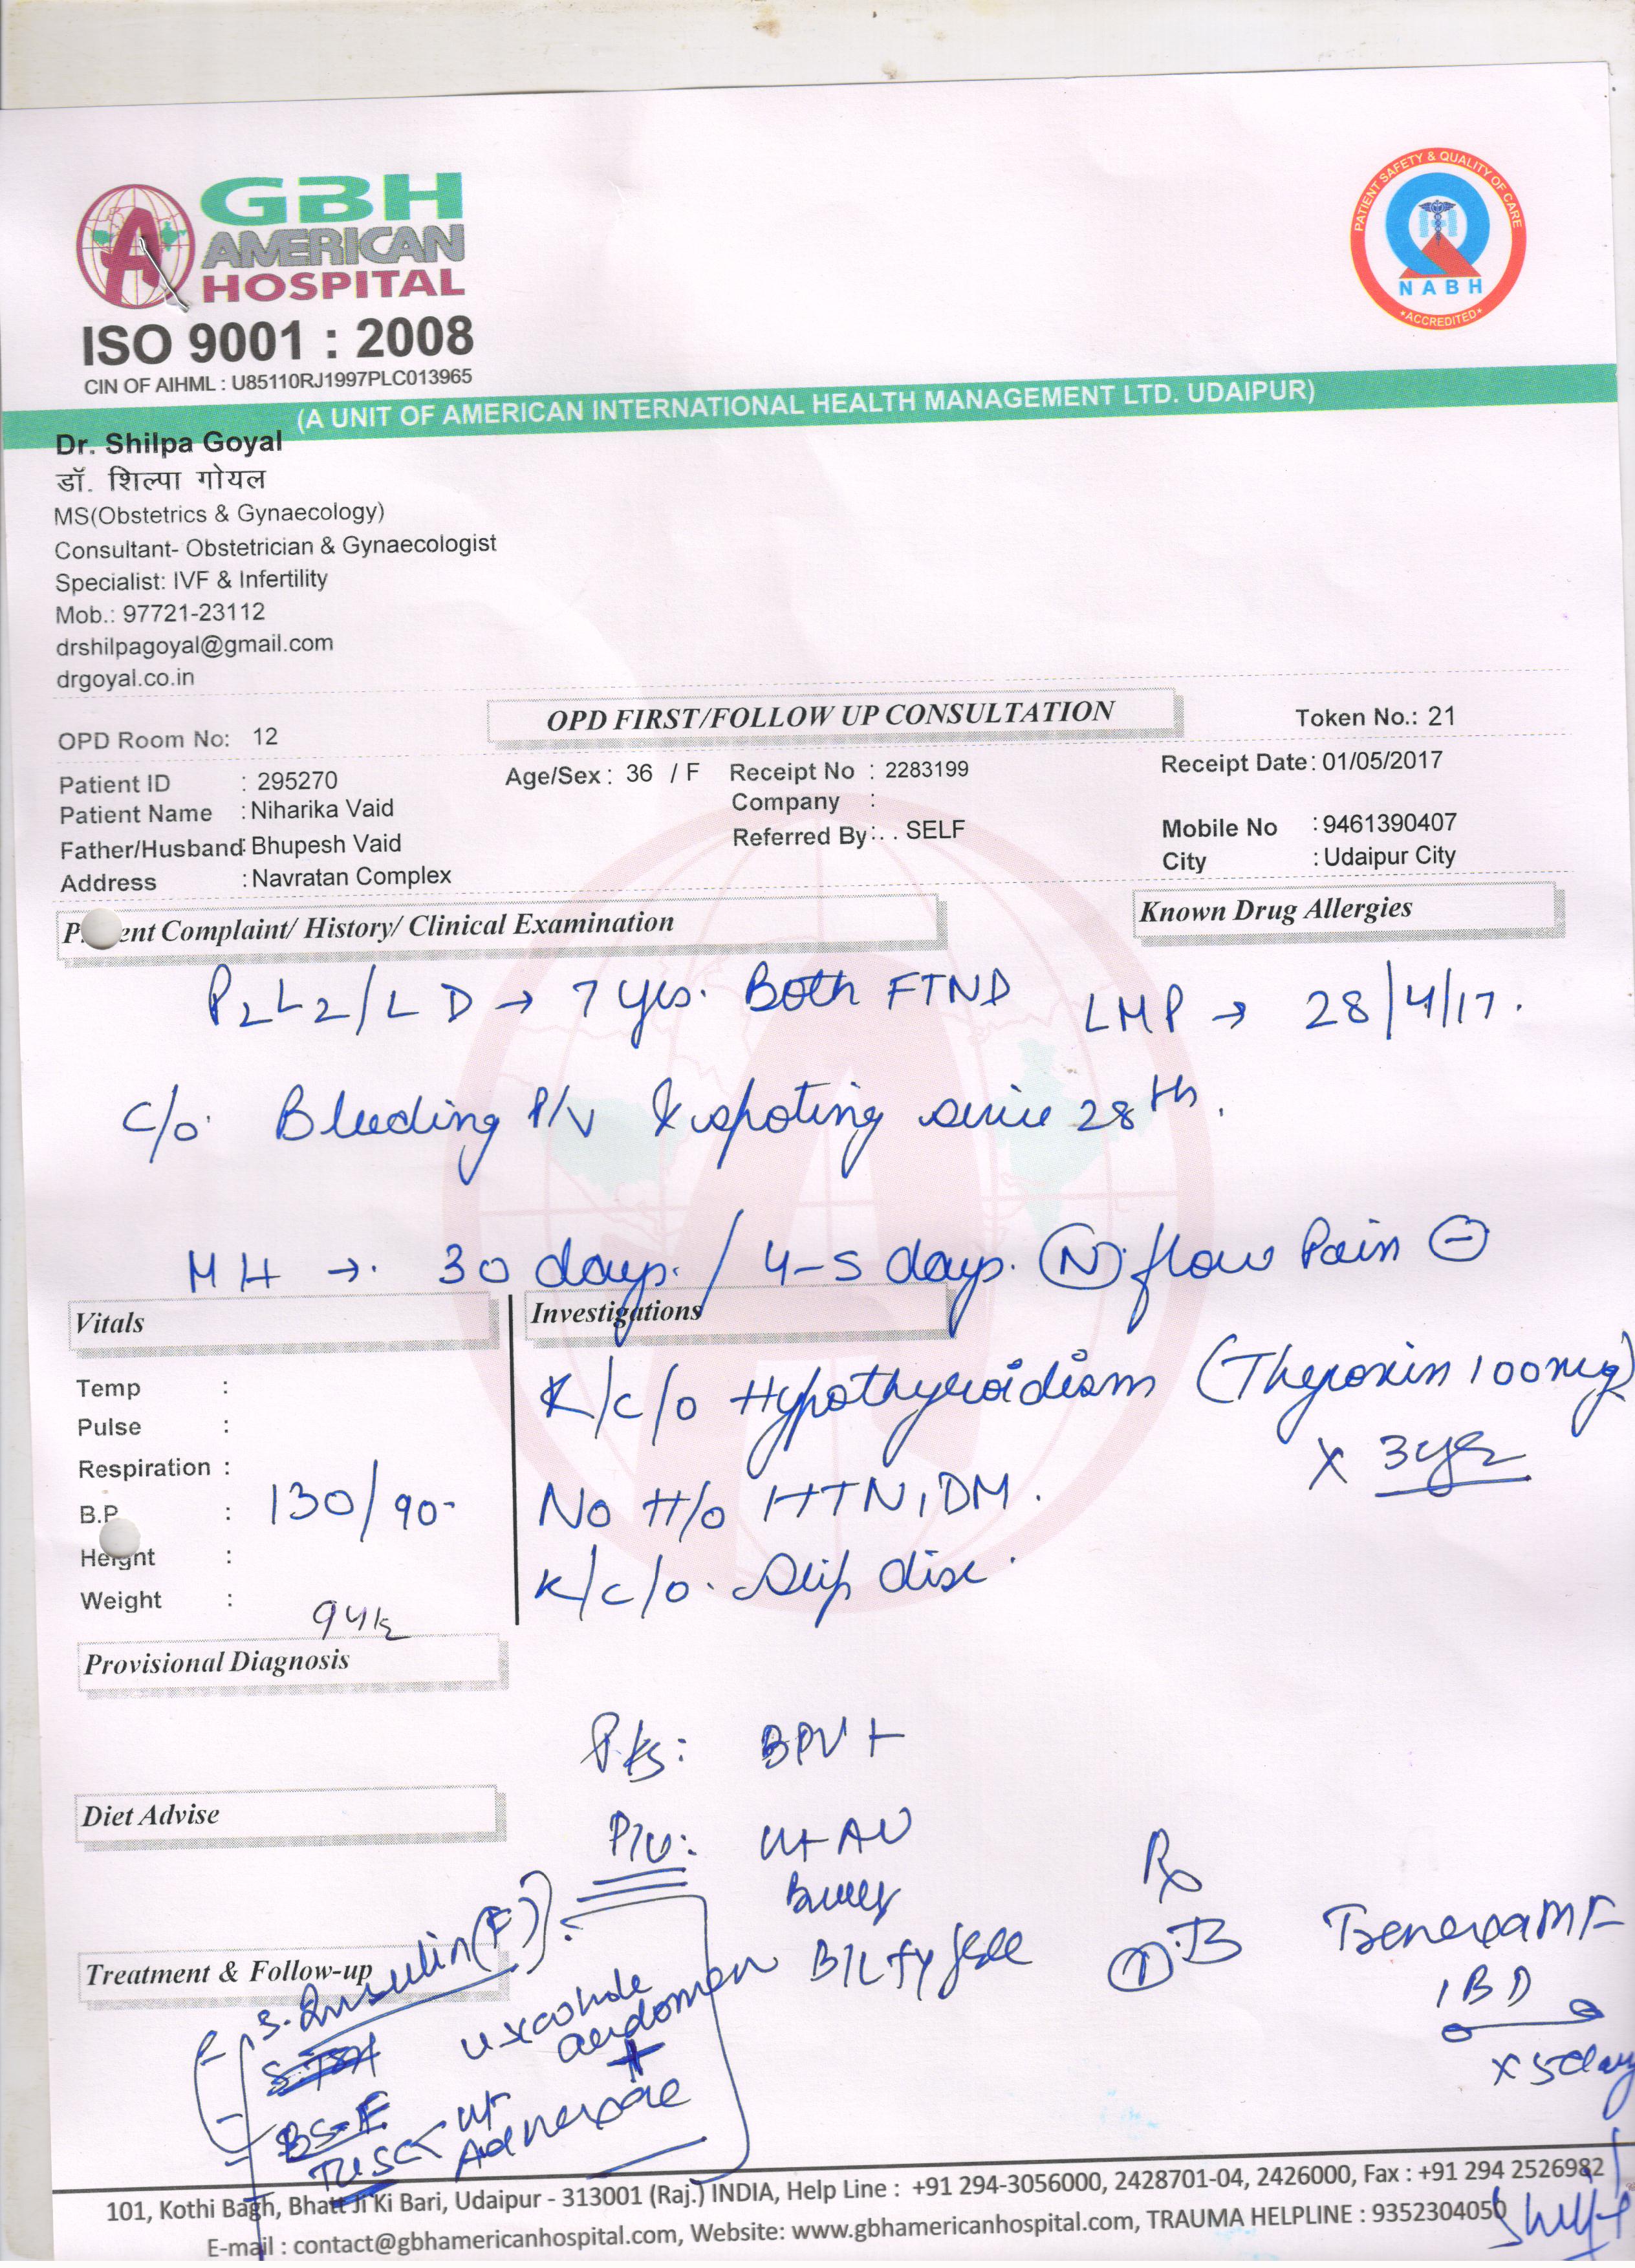 GBH
AMERICAN
HOSPITAL
ISO 9001 : 2008
CIN OF AIHML : U85110RJ1997PLC013965
PATIENT SAFETY & QUALITY OF CARE
NABH
ACCREDITED
(A UNIT OF AMERICAN INTERNATIONAL HEALTH MANAGEMENT LTD. UDAIPUR)
Dr. Shilpa Goyal
डॉ. शिल्पा गोयल
MS(Obstetrics & Gynaecology)
Consultant- Obstetrician & Gynaecologist
Specialist: IVF & Infertility
Mob.: 97721-23112
drshilpagoyal@gmail.com
drgoyal.co.in
OPD Room No: 12 OPD FIRST/FOLLOW UP CONSULTATION Token No.: 21
Patient ID : 295270 Age/Sex : 36 / F Receipt No : 2283199 Receipt Date: 01/05/2017
Patient Name : Niharika Vaid Company :
Father/Husband: Bhupesh Vaid Referred By: . . SELF Mobile No : 9461390407
Address : Navratan Complex City : Udaipur City
ent Complaint/ History/ Clinical Examination Known Drug Allergies
P2L2/LD → 7 yrs. Both FTND LMP → 28/4/17.
C/o. Bleeding P/V & spoting since 28th.
MH →. 30 days. / 4-5 days. (N) flow Pain ⊖
Vitals Investigations
Temp :
Pulse :
Respiration :
B.P : 130/90
Height :
Weight : 94k
K/c/o Hypothyroidism (Thyroxin 100mcg)
x 3yr
No H/o HTN, DM.
K/c/o. Slip disc.
Provisional Diagnosis
P/s: BPV +
Diet Advise
P/V: Ut AV
B/L fx free
Rx
Treatment & Follow-up
S. Insulin (F)
S. TSH
BS-F
TVS
ut
Adnexae
+
① Tranexa MF
1 BD
x 5 day
101, Kothi Bagh, Bhatt Ji Ki Bari, Udaipur - 313001 (Raj.) INDIA, Help Line : +91 294-3056000, 2428701-04, 2426000, Fax : +91 294 2526982
E-mail : contact@gbhamericanhospital.com, Website: www.gbhamericanhospital.com, TRAUMA HELPLINE : 9352304050